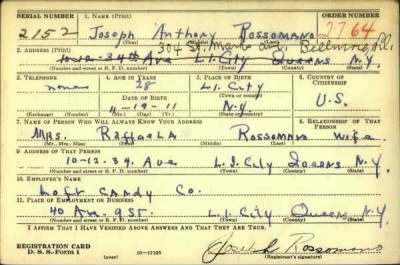 SERIAL NUMBER 1. NAME (Print) ORDER NUMBER
2152 Joseph Anthony Rossomano 2764
304 St. Marks Ave. Bellmore, N.Y.
(First) (Middle) (Last)
2. ADDRESS (Print)
10-12-34th Ave L.I. City Queens N.Y.
(Number and street or R. F. D. number) (Town) (County) (State)
3. TELEPHONE 4. AGE IN YEARS 5. PLACE OF BIRTH 6. COUNTRY OF CITIZENSHIP
none 28 L.I. City U.S.
DATE OF BIRTH (Town or county)
11-19-11 N.Y.
(Exchange) (Number) (Mo.) (Day) (Yr.) (State or country)
7. NAME OF PERSON WHO WILL ALWAYS KNOW YOUR ADDRESS 8. RELATIONSHIP OF THAT PERSON
MRS. Raffaela Rossomano Wife
(Mr., Mrs., Miss) (First) (Middle) (Last)
9. ADDRESS OF THAT PERSON
10-12-34. Ave L.I. City Queens N.Y.
(Number and street or R. F. D. number) (Town) (County) (State)
10. EMPLOYER'S NAME
Loft Candy Co.
11. PLACE OF EMPLOYMENT OR BUSINESS
40 Ave-9 St. L.I. City Queens N.Y.
(Number and street or R. F. D. number) (Town) (County) (State)
I AFFIRM THAT I HAVE VERIFIED ABOVE ANSWERS AND THAT THEY ARE TRUE.
REGISTRATION CARD
D. S. S. Form 1 (over) 16—17105 Joseph Rossomano
(Registrant's signature)